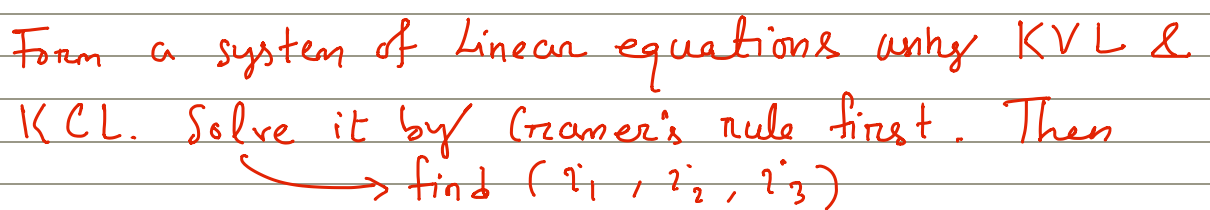 Form a system of Linear equations using KVL &
KCL. Solve it by Cramer's rule first. Then
find (i₁, i₂, i₃)